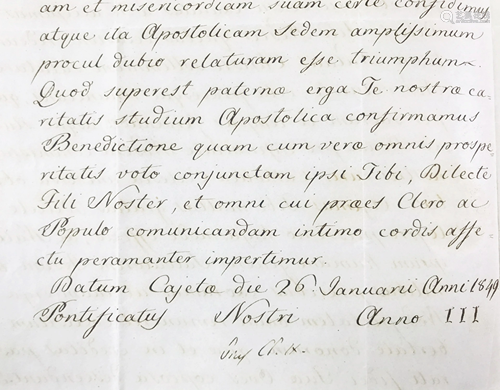 am et misericordiam suam certe confidimus
atque ita Apostolicam Sedem amplissimum
procul dubio relaturam esse triumphum.
Quod superest paternæ erga Te nostræ ca-
ritatis studium Apostolica confirmamus
Benedictione quam cum veræ omnis prospe-
ritatis voto conjunctam ipsi Tibi, Dilecte
Fili Noster, et omni cui præes Clero ac
Populo comunicandam intimo cordis affe-
ctu peramanter impertimur.
Datum Cajetæ die 26. Januarii Anni 1849
Pontificatus Nostri Anno III
Pius PP. IX.